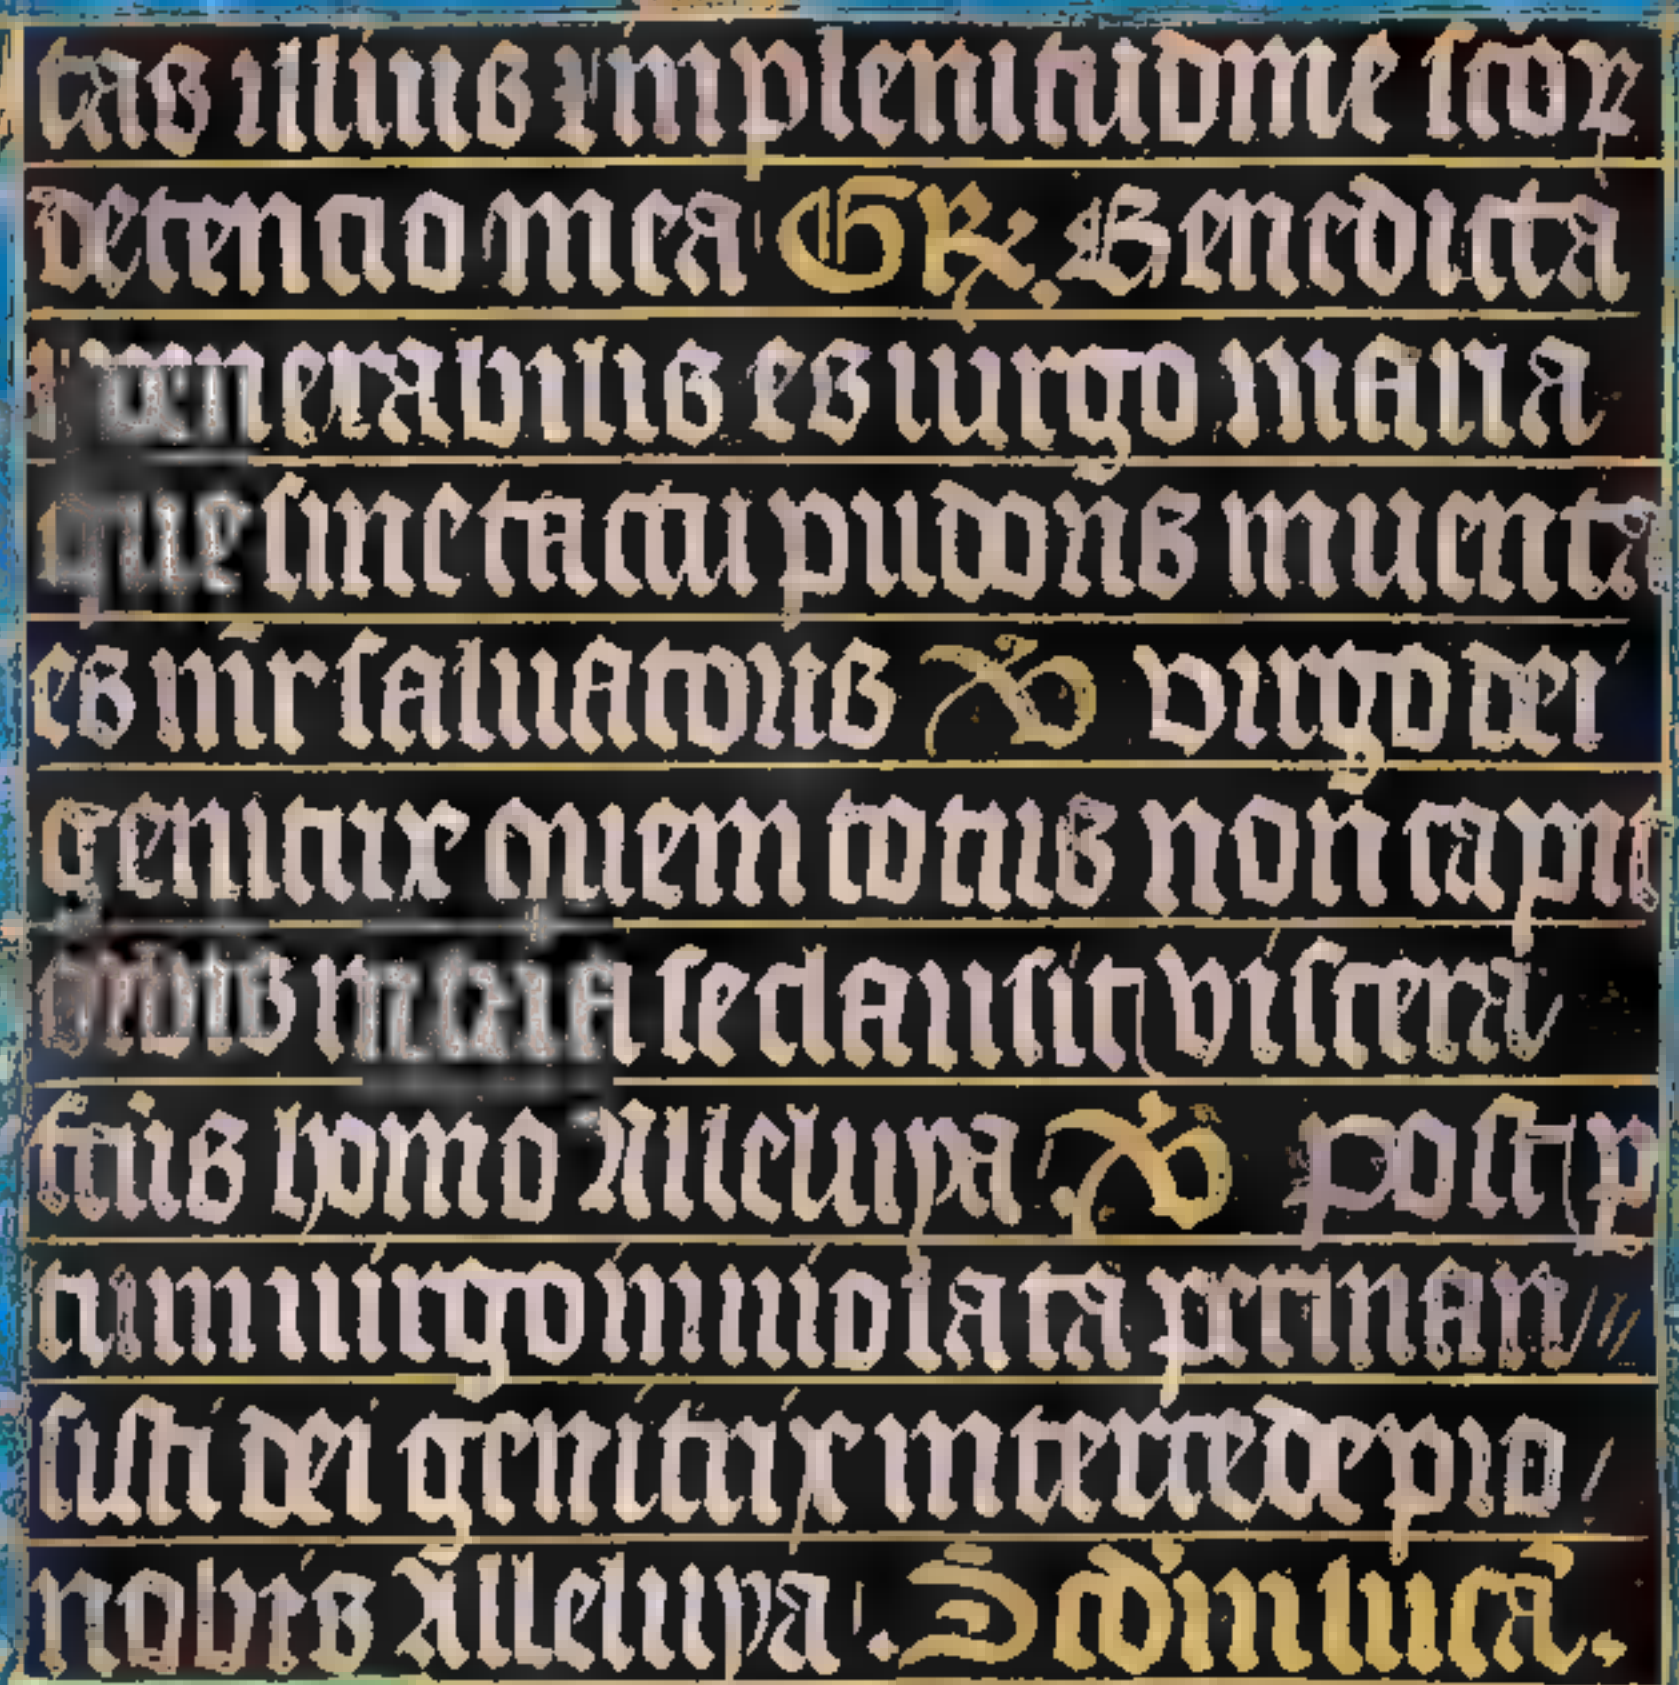 tas illius et in plenitudine scoꝝ
detencio mea GR. Benedicta
et venerabilis es uirgo maria
que sine tactu pudoris inuenta
es mr̄ saluatoris ℣ virgo dei
genitrix quem totus non capit
orbis in tua se clausit viscera
fctūs homo Alleluya ℣ post p
tum uirgo inuiolata perman
sisti dei genitrix intercede pro
nobis Alleluya. Scd̄m lucā.